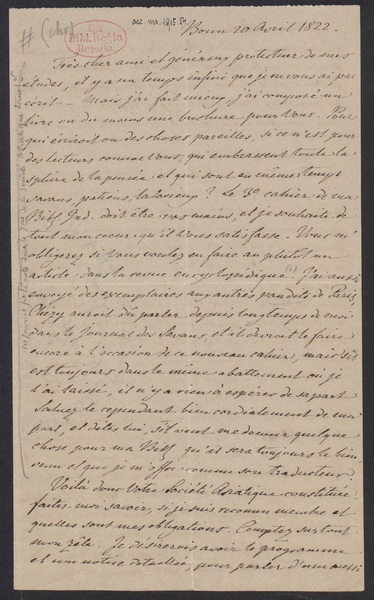 acc. ms. 1915. 54.
# (cho)
Ex
Biblioth. Regia
Berolin.
Bonn 20 Avril 1822.
Très cher ami et généreux protecteur de mes
études, il y a un temps infini que je ne vous ai pas
écrit — Mais j'ai fait mieux, j'ai composé un
livre ou du moins une brochure pour Vous. Pour
qui écriroit on des choses pareilles, si ce n'est pour
des lecteurs comme Vous, qui embrassent toute la
sphère de la pensée et qui sont en même temps
savans, patiens, laborieux? Le 3e cahier de ma
Bibl. Ind. doit être vos mains, et je souhaite de
tout mon coeur qu'il Vous satisfasse. Vous m'
obligerez si Vous voulez en faire au plutot un
article dans la revue encyclopédique. (1) J'ai aussi
envoyé des exemplaires aux autres pandits de Paris.
Chézy auroit du parler depuis longtemps de moi
dans le Journal des Savans, et il devroit le faire
encore à l'occasion de ce nouveau cahier, mais s'il
est toujours dans le même abattement où je
l'ai laissé, il n'y a rien à espérer de sa part
Saluez le cependant bien cordialement de ma
part, et dites lui, s'il veut me donner quelque
chose pour ma Bibl. qu'il sera toujours le bien
venu et que je m'offre comme son traducteur.
Voilà donc Votre Société Asiatique constituée
faites moi savoir, si je suis reconnu membre et
quelles sont mes obligations. Comptez sur tout
mon zèle. Je désirerois avoir le programme
et une notice détaillée, pour parler d'une